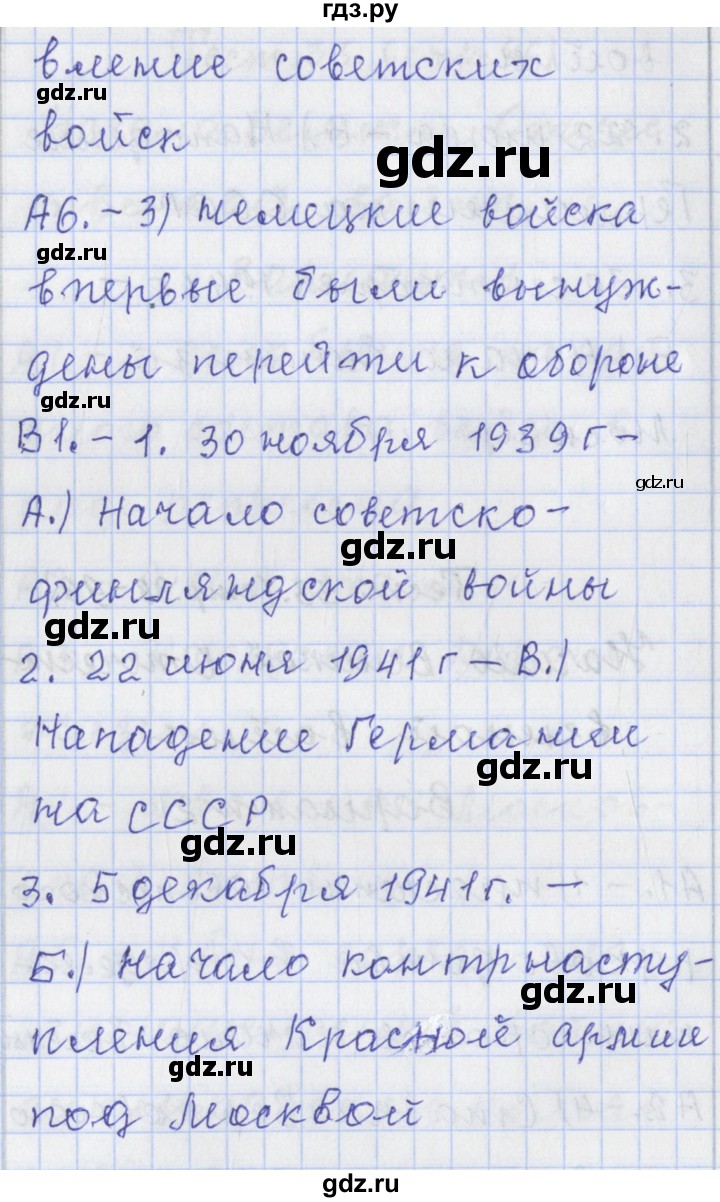 гдз.ру
вление советских
gdz.ru
войск
gdz.ru
А6. - 3) немецкие войска
gdz.ru
впервые были вынуж-
дены перейти к обороне
gdz.ru
В1. - 1. 30 ноября 1939 г -
gdz.ru
А.) Начало советско-
gdz.ru
финляндской войны
gdz.ru
2. 22 июня 1941 г - В.)
Нападение Германии
gdz.ru
на СССР
gdz.ru
3. 5 декабря 1941 г. -
Б.) Начало контрнасту-
gdz.ru
пления Красной армии
gdz.ru
под Москвой
gdz.ru